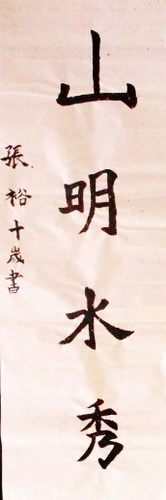 山明水秀
張裕十歲書